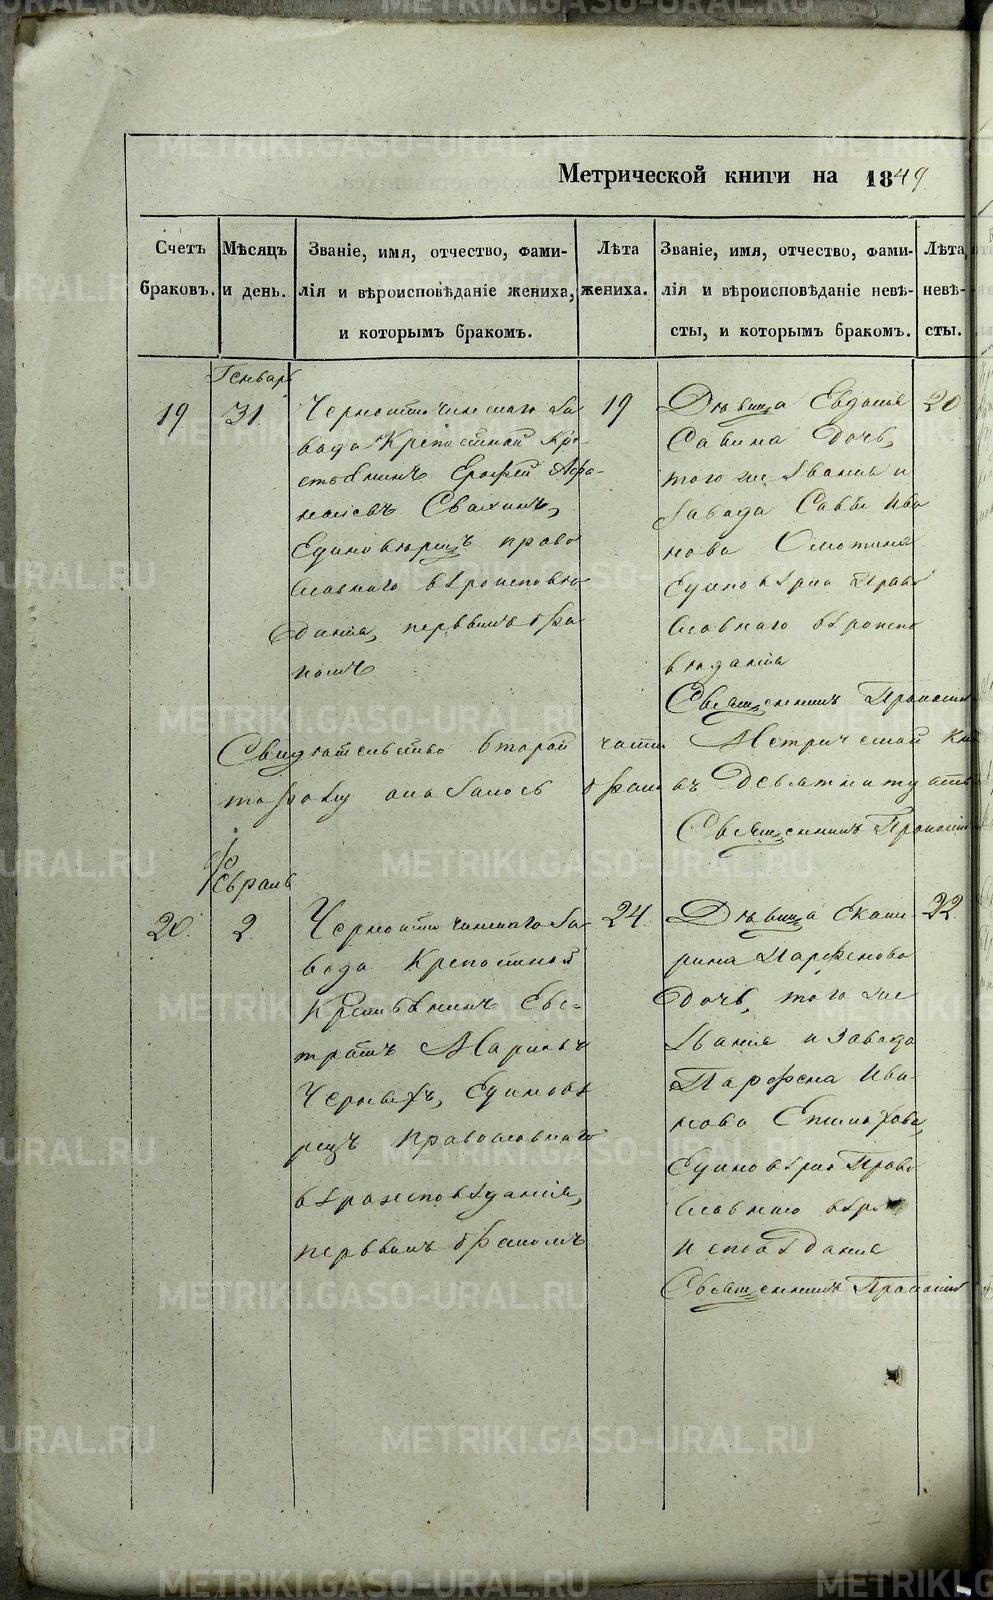 Метрической книги на 1849
Счетъ браковъ.
Мѣсяцъ и день.
Званіе, имя, отчество, фами-
лія и вѣроисповѣданіе жениха,
и которымъ бракомъ.
Лѣта жениха.
Званіе, имя, отчество, фами-
лія и вѣроисповѣданіе невѣ-
сты, и которымъ бракомъ.
Лѣта невѣ-
сты.
Генварь
19
31
Черноисточинскаго За
вода Крепостной Кре-
стьянинъ Ерофей Афо-
насьевъ
Единовѣрецъ право
славнаго вѣроисповѣ
данія, первымъ бра
комъ
19
Дѣвица Евдокія
Савина дочь,
того же званія и
завода Саввы Ива
нова
Единовѣрно Право
славнаго вѣроиспо
вѣданія
20
Священникъ
Свидѣтельство второй части Метрической
оказалось браковъ Девятнатцать
Священникъ
Февраль
20.
2.
Черноисточинскаго За
вода Крепостной
Крестьянинъ Евс-
тратъ Марковъ
Черныхъ, Единовѣ
рецъ православнаго
вѣроисповѣданія,
первымъ бракомъ
24.
Дѣвица Екате
рина Парфенова
Дочь, того же
званія и завода
Парфена Ива
нова
Единовѣрно Право
славнаго вѣро
исповѣданія
22.
Священникъ
METRIKI.GASO-URAL.RU